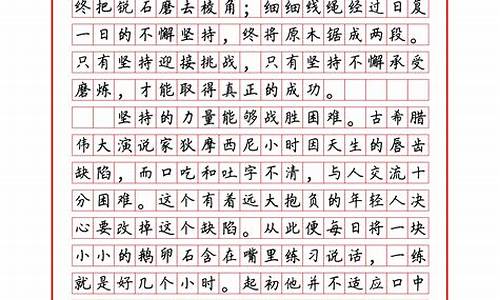 终把锐石磨去棱角；细细线绳经过日复
一日的不懈坚持，终将原木锯成两段。
只有坚持迎接挑战，只有坚持不懈承受
磨炼，才能取得真正的成功。
坚持的力量能够战胜困难。古希腊
伟大演说家狄摩西尼小时因天生的唇齿
缺陷，而口吃和吐字不清，与人交流十
分困难。这个有着远大抱负的年轻人决
心要改掉这个缺陷。从此便每日将一块
小小的鹅卵石含在嘴里练习说话，一练
就是好几个小时。起初他并不适应口中